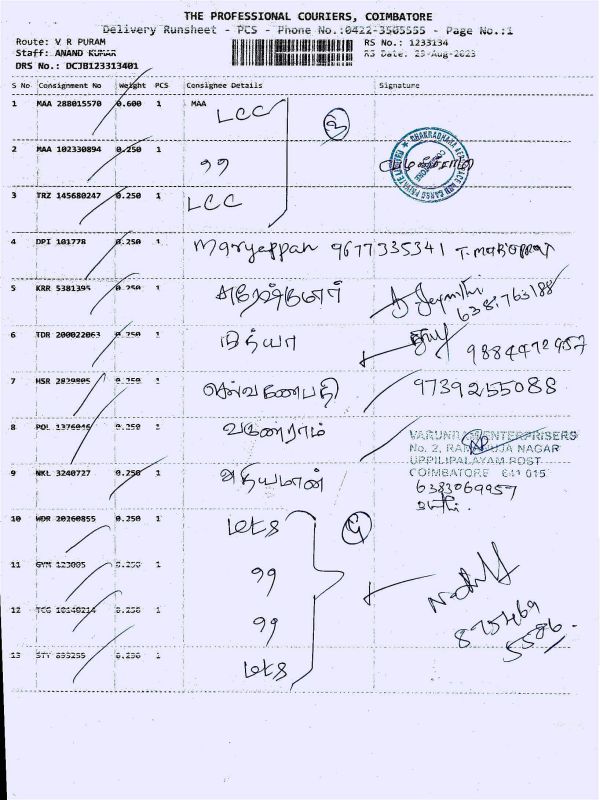 THE PROFESSIONAL COURIERS, COIMBATORE
Delivery Runsheet - PCS - Phone No.:0422-3505555 - Page No.:1
Route: V R PURAM RS No.: 1233134
Staff: ANAND KUMAR RS Date: 25-Aug-2023
DRS No.: DCJB123313401
S No Consignment No Weight PCS Consignee Details Signature
1 MAA 288015570 0.600 1 MAA LCC
2 MAA 102330894 0.250 1 99
3 TRZ 145680247 0.250 1 LCC
4 DPI 101778 0.250 1 Maryeppan 9677335341
5 KRR 5381395 0.250 1 சுரேஷ்குமார் 6381763188
6 TDR 200022063 0.250 1 நித்யா 9884472957
7 HSR 2829805 0.250 1 செல்வகணபதி 9739255088
8 POL 1376046 0.250 1 வருணராம்
VARUNRAM ENTERPRISERS
No. 2, RAMANUJA NAGAR
UPPILIPALAYAM POST
COIMBATORE 641 015
9 NKL 3240727 0.250 1 அதியமான் 6383069957
10 WDR 20260855 0.250 1
11 GYM 123005 0.250 1 99
12 TCG 10140214 0.250 1 99
13 STY 0.250 1
875469
5586